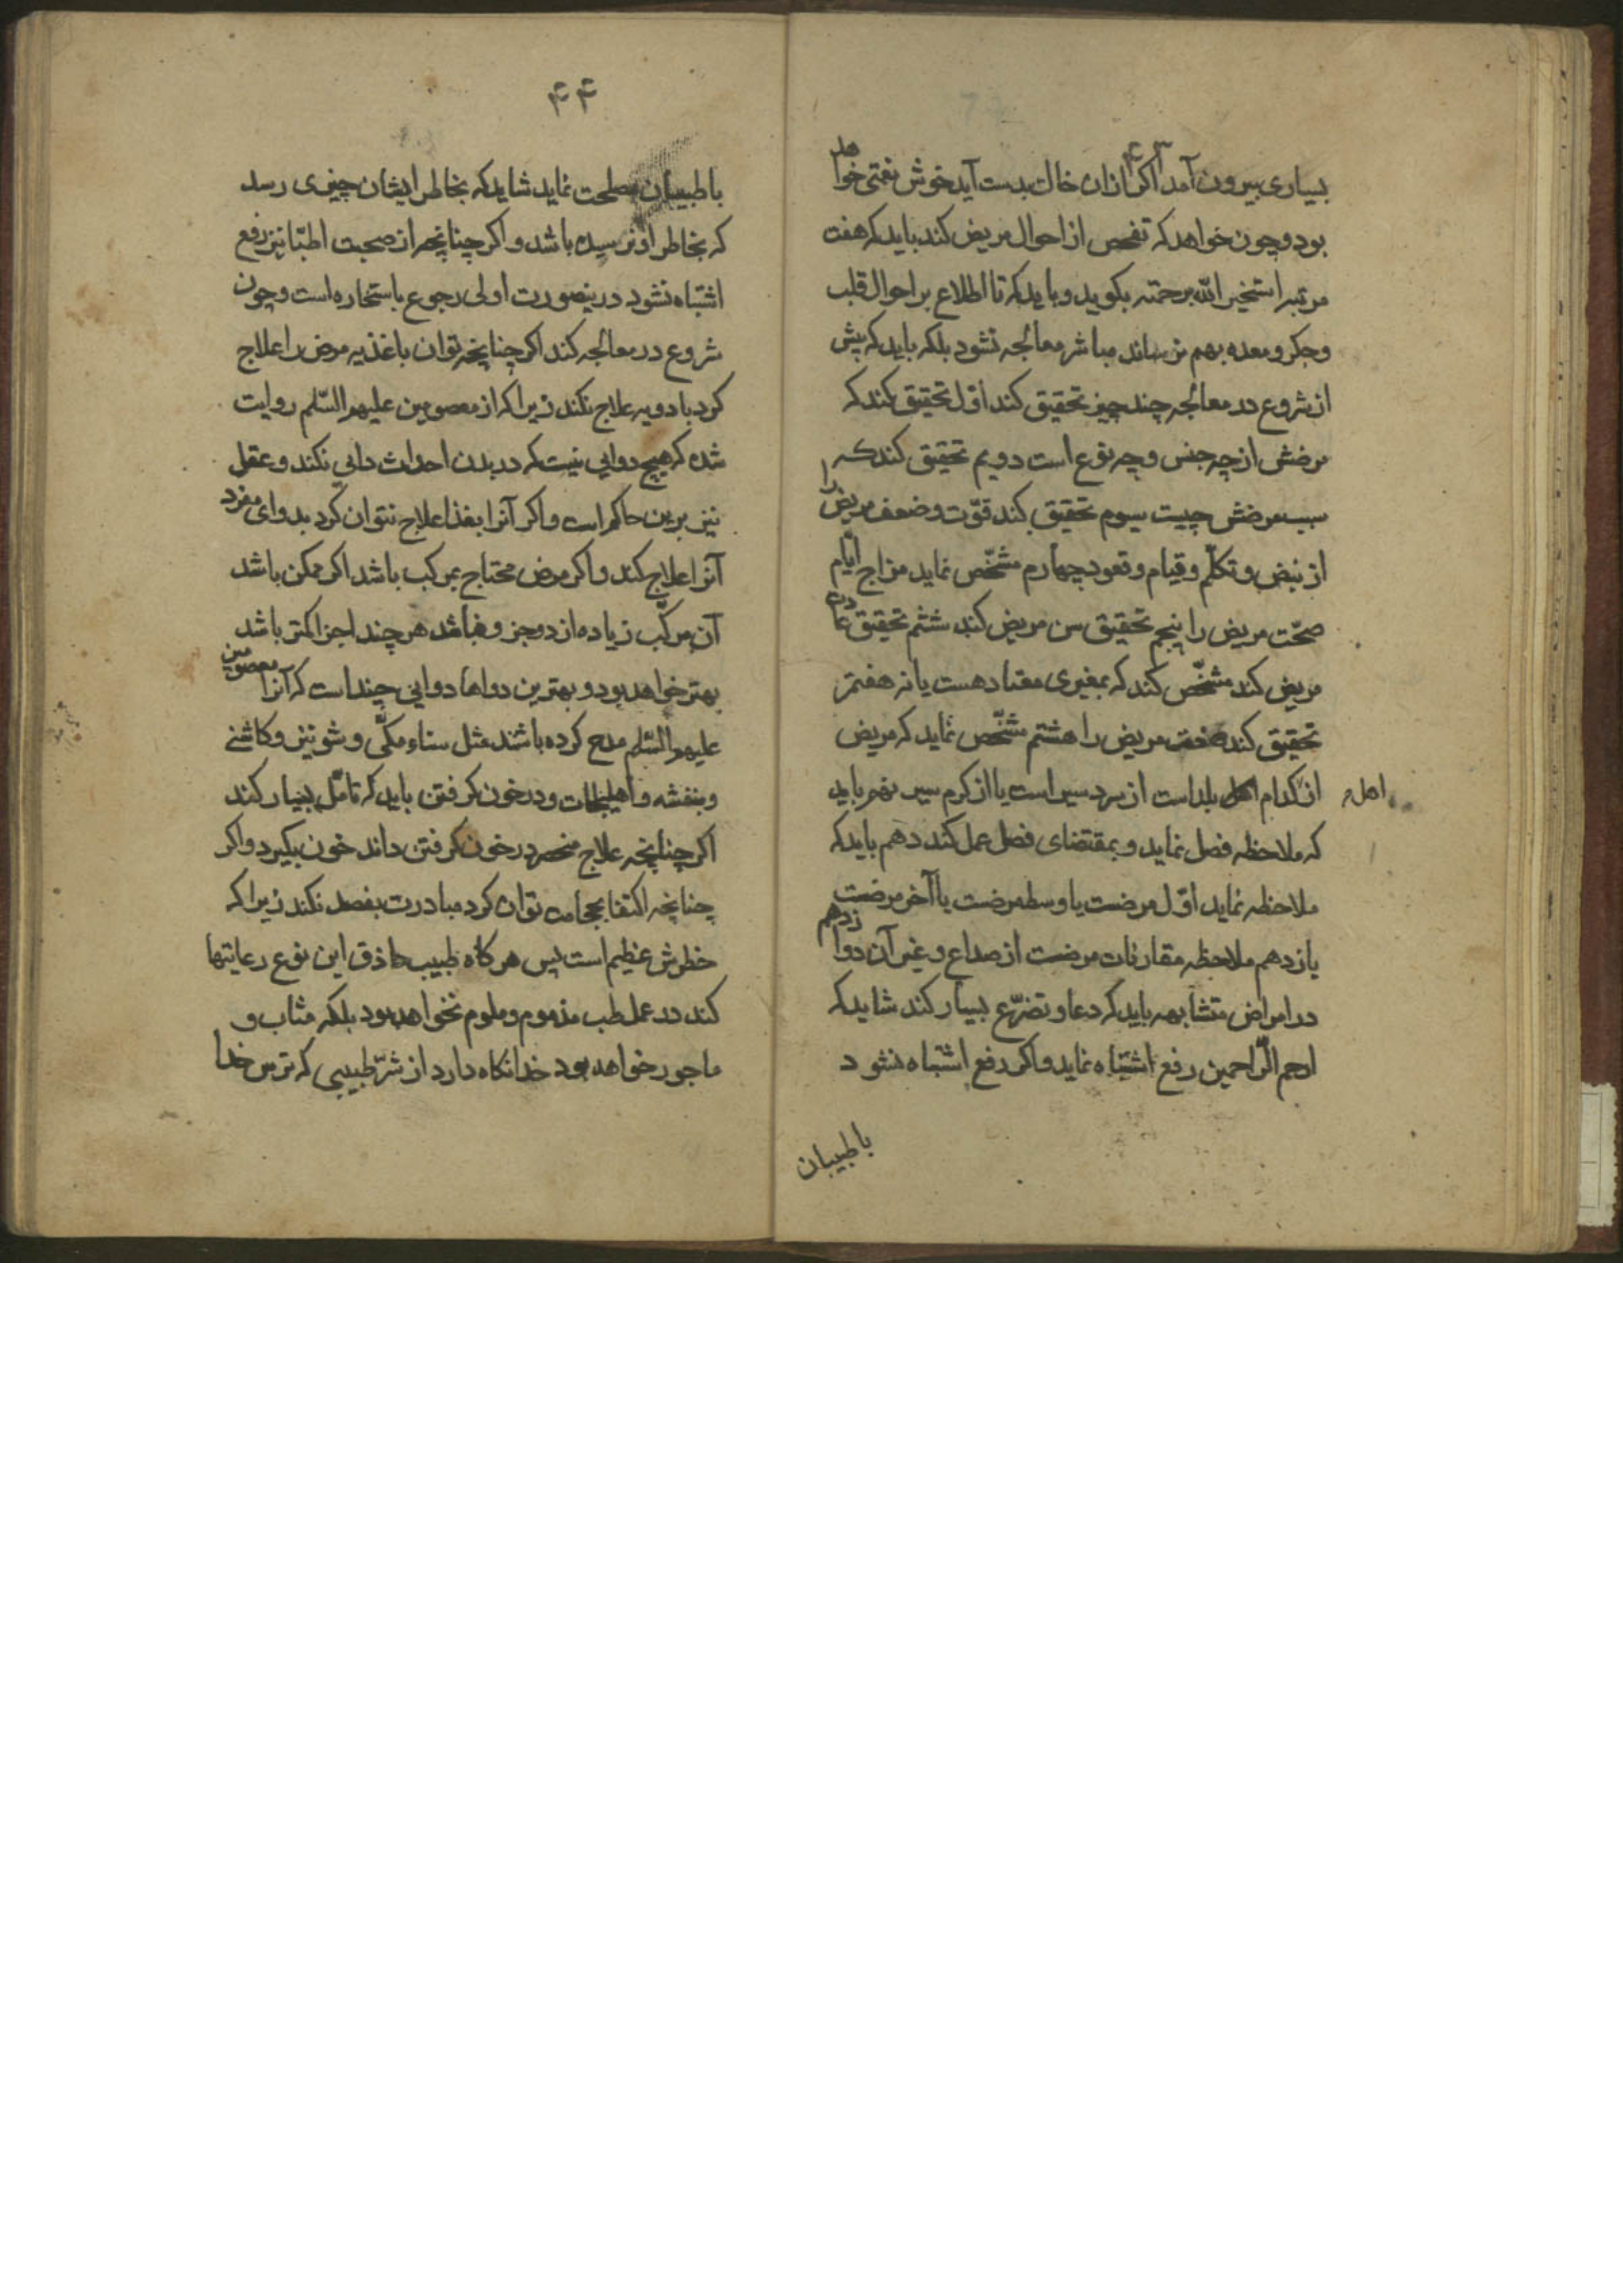 ۴۳
بسیاری بیرون آمد اکر ازان خاك بدست آید خوش نعمتی خواهد
بود و چون خواهد که تفحص از احوال مریض کند باید که هفت
مرتبه استخیر الله برحمته بکوید و باید که تا اطلاع بر احوال قلب
و جکر و معده بهم نرساند مباشر معالجه نشود بلکه باید که پیش
از شروع در معالجه چند چیز تحقیق کند اوّل تحقیق کند که
مرضش از چه جنس و چه نوع است دویم تحقیق کند که
سبب مرضش چیست سیوم تحقیق کند قوّت و ضعف مریض را
از نبض و تکلّم و قیام و قعود چهارم مشخّص نماید مزاج ایّام
صحّت مریض را پنجم تحقیق سن مریض کند ششم تحقیق عادت
مریض کند مشخّص کند که بمغیری معتاد هست یا نه هفتم
تحقیق کند صنعت مریض را هشتم مشخّص نماید که مریض
از کدام اهل بلد است از سرد سیر است یا از کرم سیر نهم باید
اهل
که ملاحظه فصل نماید و بمقتضای فصل عمل کند دهم باید که
ملاحظه نماید اوّل مرضست یا وسط مرضست یا آخر مرضست
یازدهم ملاحظه مقارنات مرضست از صداع و غیر آن دوازدهم
در امراض متشابهه باید که دعا و تضرّع بسیار کند شاید که
ارحم الرّاحمین رفع اشتباه نماید و اکر رفع اشتباه نشود
باطبیبان
۴۴
باطبیبان مصلحت نماید شاید که بخاطر ایشان چیزی رسد
که بخاطر او نرسیده باشد و اکر چنانچه از صحبت اطبّا نیز رفع
اشتباه نشود درینصورت اولی رجوع باستخاره است و چون
شروع در معالجه کند اکر چنانچه توان باغذیه مرض را علاج
کرد بادویه علاج نکند زیرا که از معصومین علیهم السّلم روایت
شده که هیچ دوایی نیست که در بدن احداث دایی نکند و عقل
نیز برین حاکم است و اکر آنرا بغذا علاج نتوان کرد بدوای مفرد
آنرا علاج کند و اکر مرض محتاج بمرکب باشد اکر ممکن باشد
آن مرکّب زیاده از دو جزو نباشد هر چند اجزا کمتر باشد
بهتر خواهد بود و بهترین دواها دوایی چند است که آنرا معصومین
علیهم السّلم مدح کرده باشند مثل سناء مکّی و شونیز و کاشنی
و بنفشه و اهلیلجات و در خون کرفتن باید که تامّل بسیار کند
اکر چنانچه علاج منحصر در خون کرفتن داند خون بکیرد و اکر
چنانچه اکتفا بحجامت توان کرد مبادرت بفصد نکند زیرا که
خطرش عظیم است پس هر کاه طبیب حاذق این نوع رعایتها
کند در عمل طب مذموم و ملوم نخواهد بود بلکه مثاب و
ماجور خواهد بود خدا نکاه دارد از شرّ طبیبی که ترس خدا